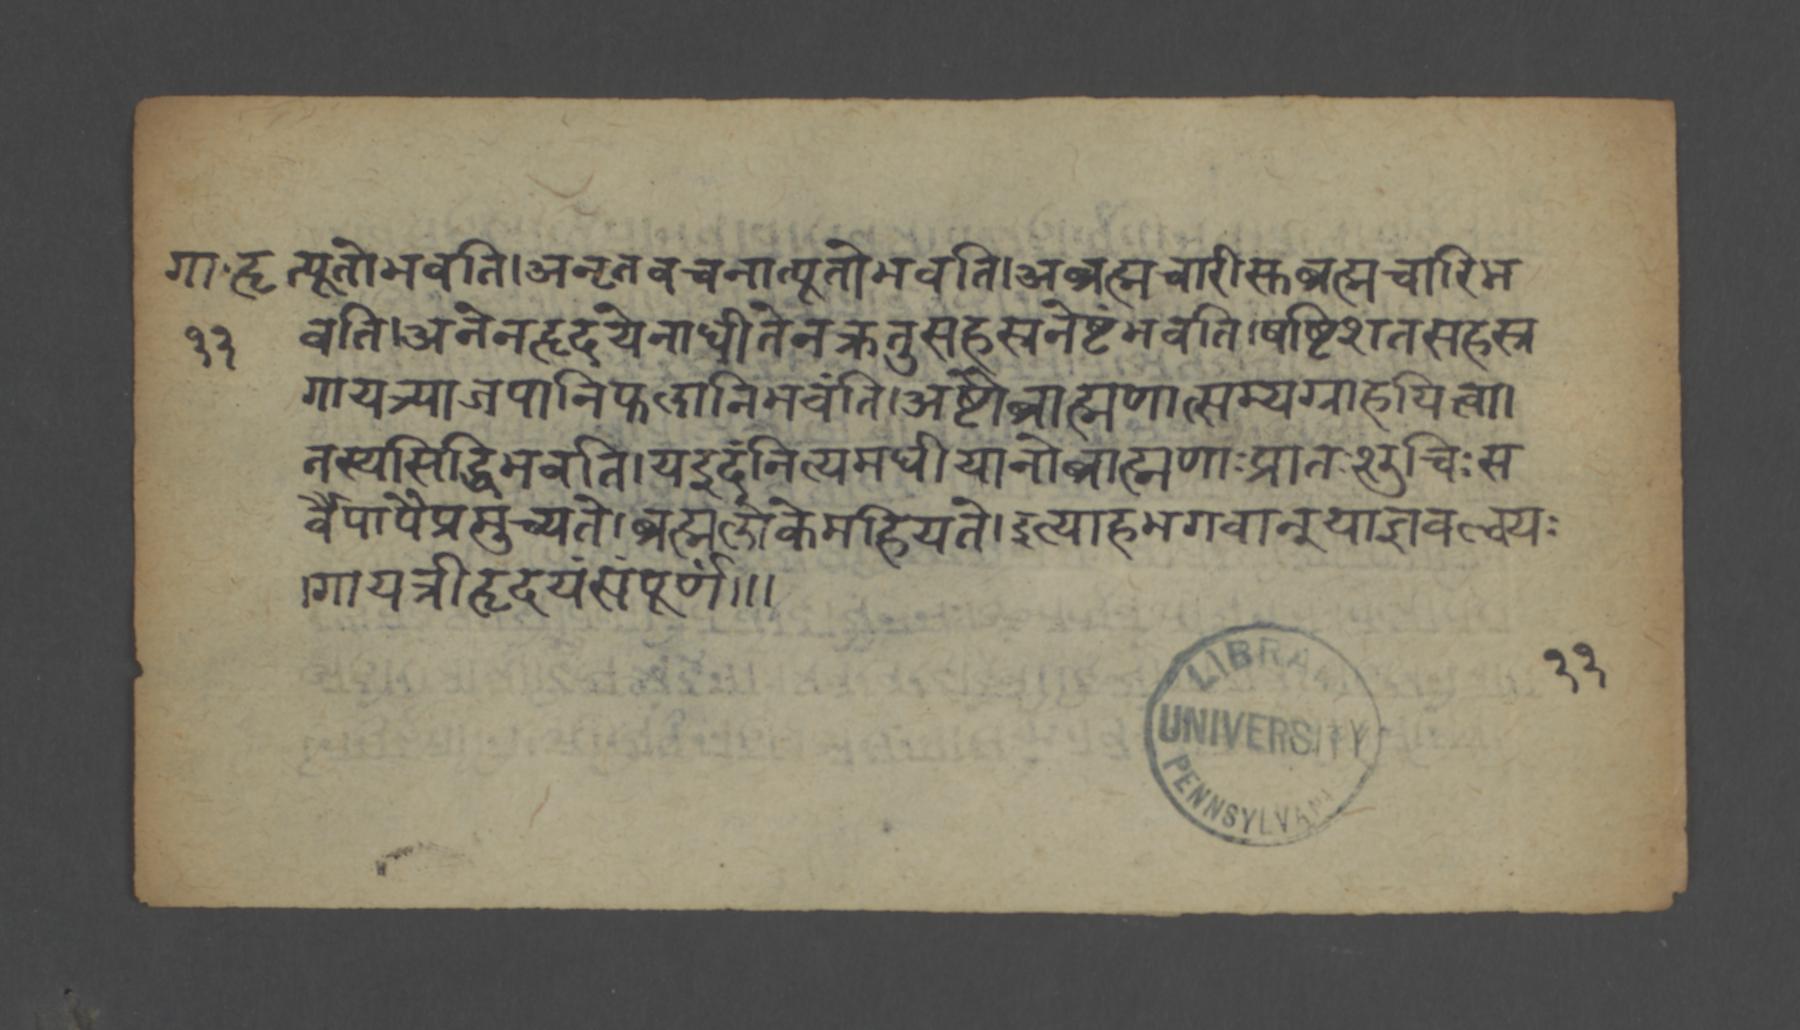 गा·हृ त्पूतोभवति।अनृतवचनात्पूतोभवति।अब्रह्मचारीस्तब्रह्मचारिभ
११ वति।अनेनहृदयेनाधीतेनक्रतुसहस्त्रनेष्टंभवति।षष्टिशतसहस्त्र
गायत्र्याजपानिफलानिभवंति।अष्टौब्राह्मणात्सम्यग्ग्राहयित्वा।
तस्यसिद्धिभवति।यइदंनित्यमधीयानोब्राह्मणाःप्रातःशुचिःस
र्वैपापैप्रमुच्यते।ब्रह्मलोकेमहियते।इत्याहभगवान्याज्ञवल्क्यः
।गायत्रीहृदयंसंपूर्णं।।।
११
LIBRA
UNIVERSITY
PENNSYLVANIA